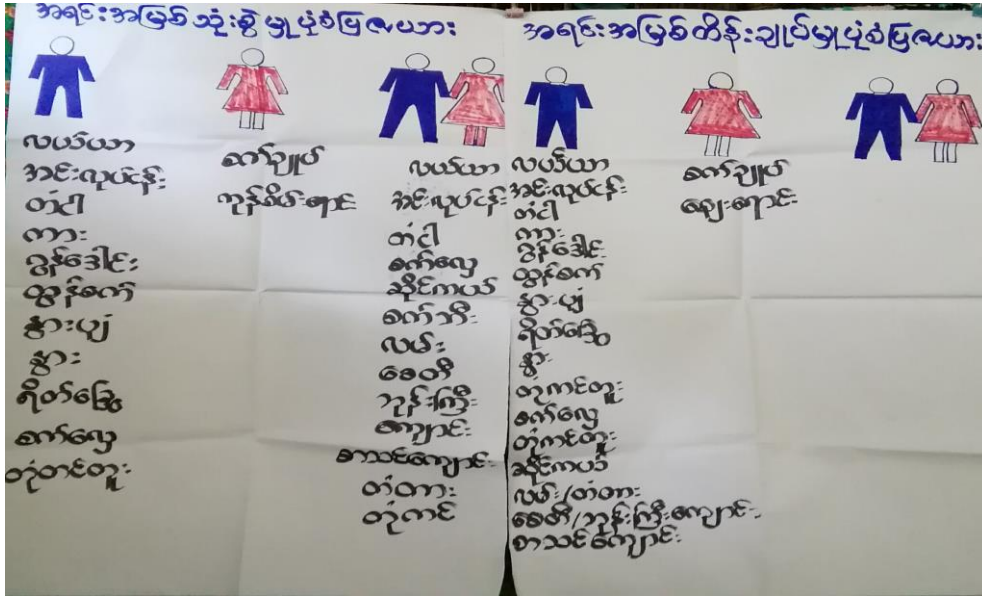 အရင်းအမြစ်သုံးစွဲမှုပုံစံပြဇယား
လယ်ယာ
အင်းလုပ်ငန်း
တံငါ
ကား
ဒွန်ဒေါင်း
ထွန်စက်
နွားပျံ
နွား
ရိတ်ခြွေ
စက်လှေ
တုံတင်တူး
စက်ချုပ်
ကုန်စိမ်းရောင်း
လယ်ယာ
အင်းလုပ်ငန်း
တံငါ
စက်လှေ
ဆိုင်ကယ်
စက်ဘီး
လမ်း
စေတီ
ဘုန်းကြီး
ကျောင်း
စာသင်ကျောင်း
တံတား
တုံကင်
အရင်းအမြစ်ထိန်းချုပ်မှုပုံစံပြဇယား
လယ်ယာ
အင်းလုပ်ငန်း
တံငါ
ကား
ဒွန်ဒေါင်း
ထွန်စက်
နွားပျံ
ရိတ်ခြွေ
နွား
တုံကင်တူး
စက်လှေ
တုံကင်တူး
ဆိုင်ကယ်
လမ်း/တံတား
စေတီ/ဘုန်းကြီးကျောင်း
စာသင်ကျောင်း
စက်ချုပ်
ဈေးရောင်း